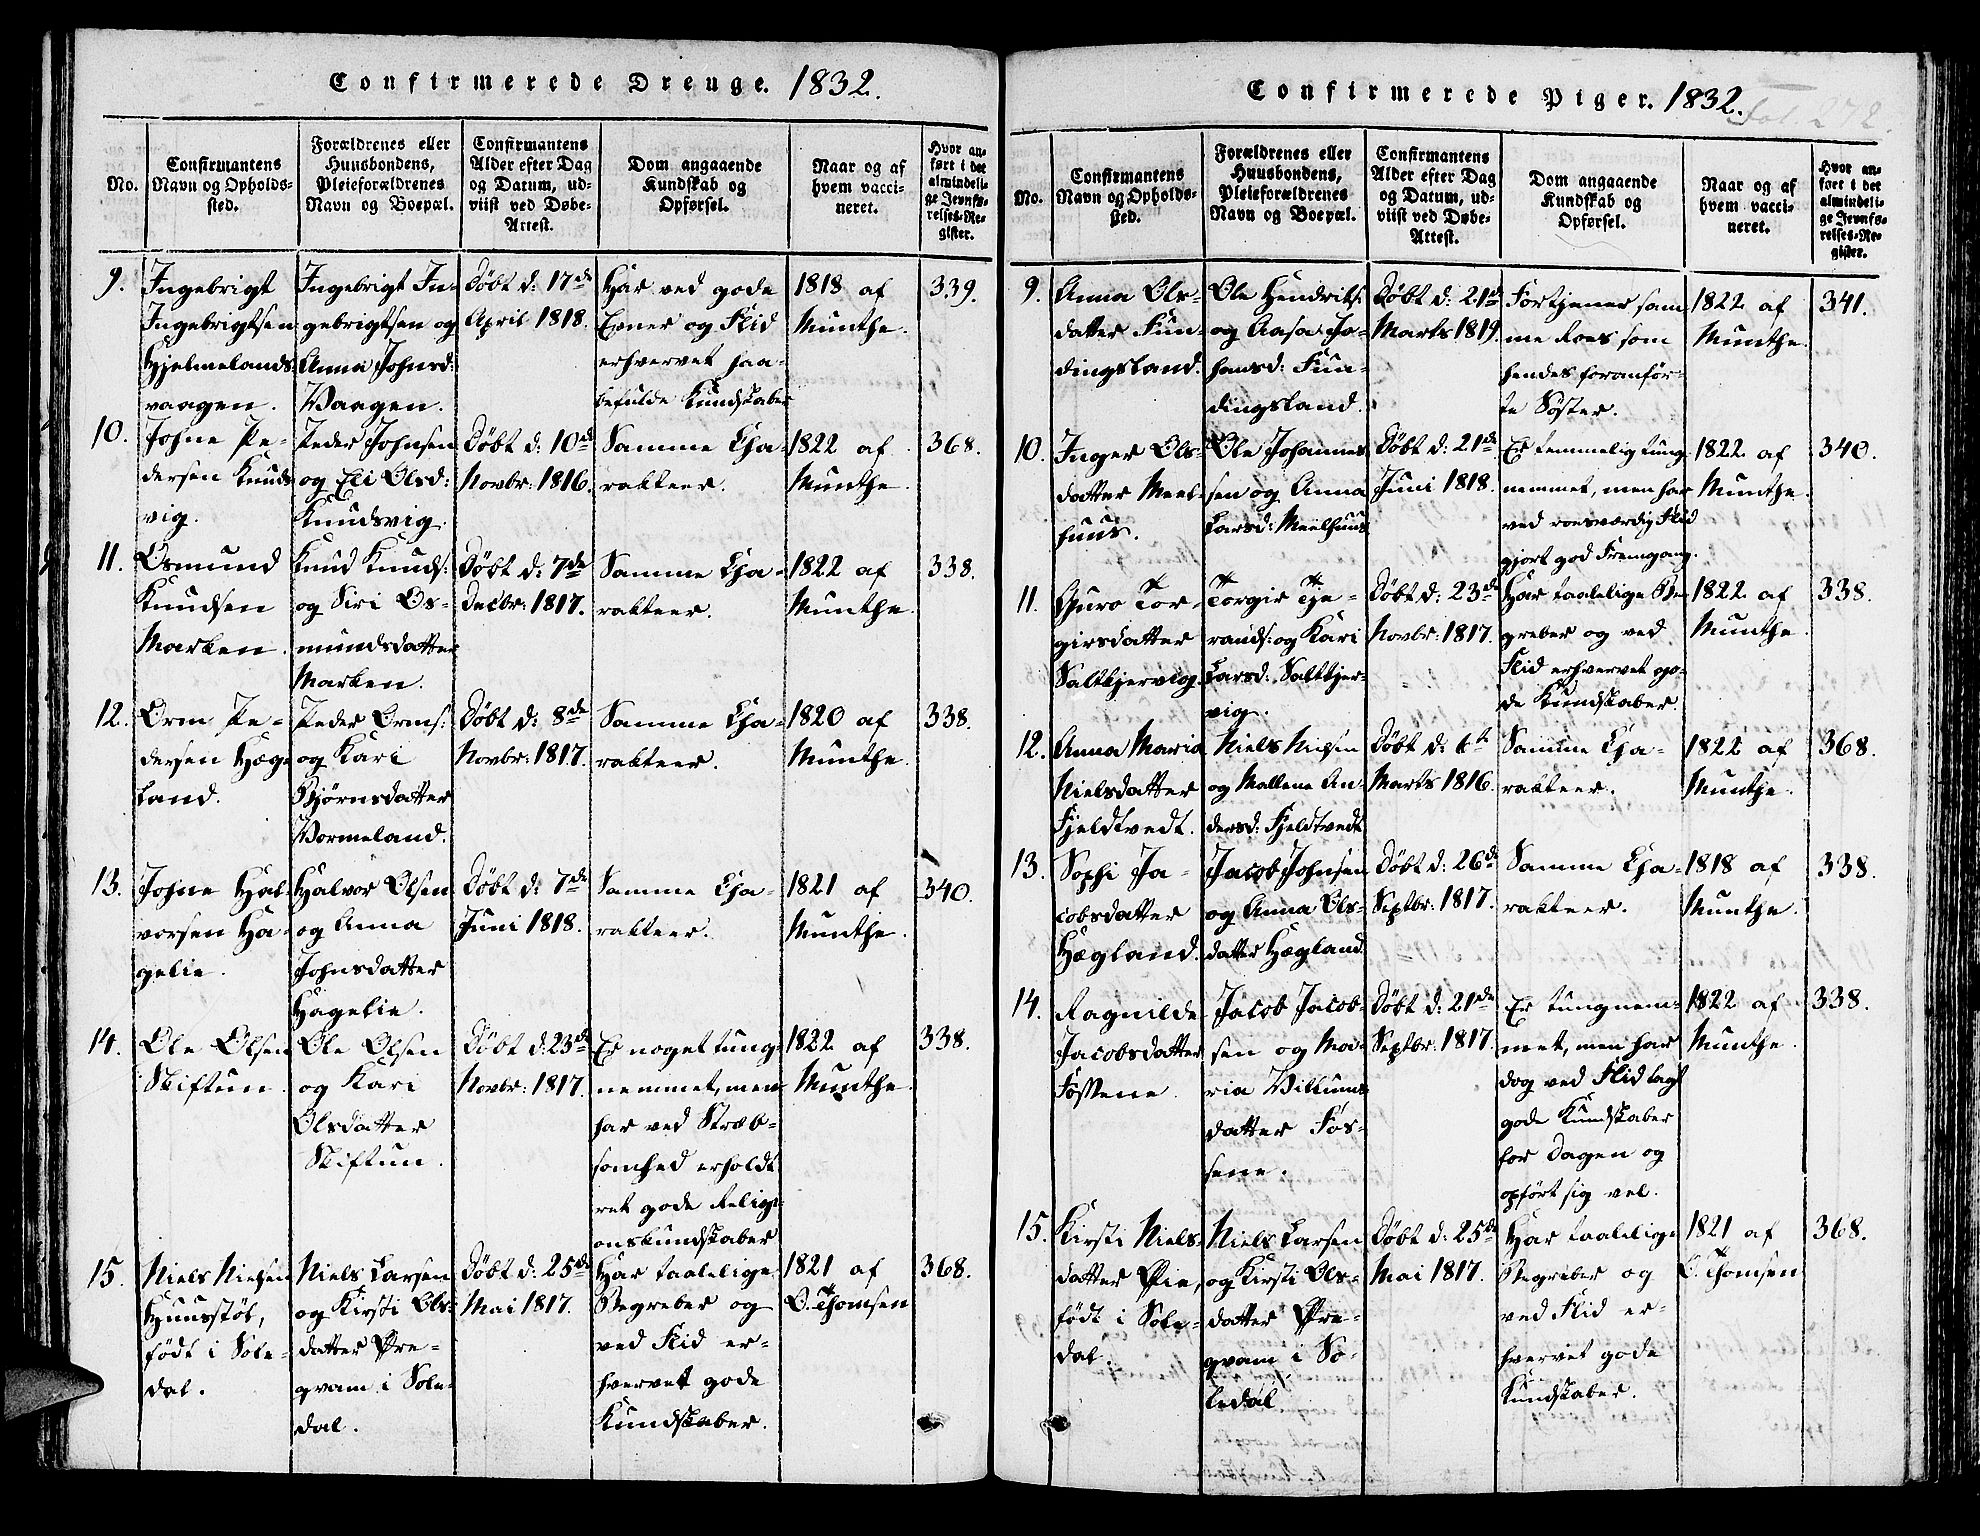 Confirmerede Drenge. 1832.
No.
Confirmantens
Navn og Opholds-
sted.
Forældrenes eller
Huusbondens,
Pleieforældrenes
Navn og Boepæl.
Confirmantens
Alder efter Dag
og Datum, ud-
viist ved Døbe-
Attest.
Dom angaaende
Kundskab og
Opførsel.
Naar og af
hvem vacci-
neret.
Hvor an-
ført i det
almindeli-
ge Jevnfø-
relses-Re-
gister.
9.
Ingebrigt
Ingebrigtsen
Hjelmelands
vaagen.
Ingebrigt In-
gebrigtsen og
Anna Johnsd:
Vaagen.
Døbt d: 17de
April 1818.
Har ved gode
Evner og Flid
erhvervet haa-
befulde Kundskaber
1818 af
Munthe.
339.
10.
Johne Pe-
dersen Knuds
vig.
Peder Johnsen
og Eli Olsd:
Knudsvig.
Døbt d: 10de
Novbr: 1816.
Samme Cha-
rakteer.
1822 af
Munthe.
368.
11.
Osmund
Knudsen
Marken.
Knud Knuds:
og Siri Os-
mundsdatter
Marken.
Døbt d: 7de
Decbr: 1817.
Samme Cha-
rakteer.
1822 af
Munthe.
338.
12.
Orm Pe-
dersen Hæg-
land.
Peder Orms:
og Kari
Bjørnsdatter
Vormeland.
Døbt d: 8de
Novbr: 1817.
Samme Cha-
rakteer.
1820 af
Munthe.
338.
13.
Johne Hal-
vorsen Ha-
gelie.
Halvor Olsen
og Anna
Johnsdatter
Hagelie.
Døbt d: 7de
Juni 1818.
Samme Cha-
rakteer.
1821 af
Munthe.
340.
14.
Ole Olsen
Skiftun.
Ole Olsen
og Kari
Olsdatter
Skiftun.
Døbt d: 23de
Novbr: 1817.
Er noget tung-
nemmet, men
har ved Stræb-
somhed erholdt
ret gode Religi-
onskundskaber
1822 af
Munthe.
338.
15.
Niels Nielsen
Huusstøl,
født i Søle-
dal.
Niels Larsen
og Kirsti Ols-
datter Pre-
gvam i Søle-
dal.
Døbt d: 25de
Mai 1817.
Har taalelige
Begreber og
ved Flid er-
hvervet gode
Kundskaber.
1821 af
O. Thomsen
368.
Confirmerede Piger. 1832.
Fol. 272.
No.
Confirmantens
Navn og Opholds-
sted.
Forældrenes eller
Huusbondens,
Pleieforældrenes
Navn og Boepæl.
Confirmantens
Alder efter Dag
og Datum, ud-
viist ved Døbe-
Attest.
Dom angaaende
Kundskab og
Opførsel.
Naar og af
hvem vacci-
neret.
Hvor an-
ført i det
almindeli-
ge Jevnfø-
relses-Re-
gister.
9.
Anna Ols-
datter Fun-
dingsland.
Ole Hendriks:
og Aasa Jo-
hansd: Fun-
dingsland.
Døbt d: 21de
Marts 1819.
Fortjener sam-
me Roes som
hendes foranfør-
te Søster.
1822 af
Munthe.
341.
10.
Inger Ols-
datter Meel-
huus.
Ole Johannes
sen og Anna
Larsd: Meelhuus
Døbt d: 21de
Juni 1818.
Er temmelig tung
nemmet, men har
ved roesværdig Flid
gjort god Fremgang.
1822 af
Munthe.
340.
11.
Guro Tor-
girsdatter
Saltkjervig.
Torgir Tje-
rands: og Kari
Larsd: Saltkjer-
vig.
Døbt d: 23de
Novbr: 1817.
Har taalelige Be-
greber og ved
Flid erhvervet go-
de Kundskaber.
1822 af
Munthe.
338.
12.
Anna Maria
Nielsdatter
Fjeldtvedt.
Niels Nielsen
og Mallene An-
dersd: Fjeldtvedt
Døbt d: 6te
Marts 1816.
Samme Cha-
rakteer.
1822 af
Munthe.
368.
13.
Sophi Ja-
cobsdatter
Hægland.
Jacob Johnsen
og Anna Ols-
datter Hægland
Døbt d: 26de
Septbr: 1817.
Samme Cha-
rakteer.
1818 af
Munthe.
338.
14.
Ragnilde
Jacobsdatter
Føssene.
Jacob Jacob-
sen og Ma-
ria Villums
datter Føs-
sene.
Døbt d: 21de
Septbr: 1817.
Er tungnem-
met, men har
dog ved Flid lagt
gode Kundskaber
for Dagen og
opført sig vel.
1822 af
Munthe.
338.
15.
Kirsti Niels-
datter Øie,
født i Søle-
dal.
Niels Larsen
og Kirsti Ols-
datter Pre-
gvam i Sø-
ledal
Døbt d: 25de
Mai 1817.
Har taalelige
Begreber og
ved Flid er-
hvervet gode
Kundskaber.
1821 af
O. Thomsen
368.